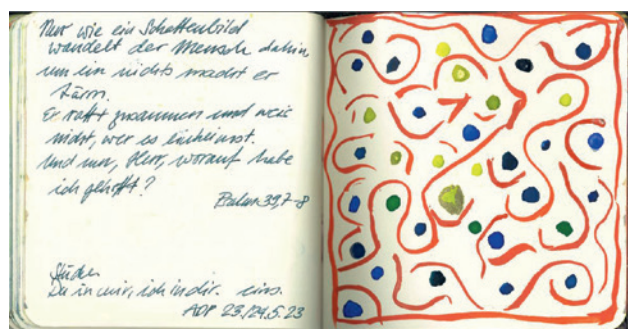 Nur wie ein Schattenbild
wandelt der Mensch dahin,
um ein nichts macht er
Lärm.
Er rafft zusammen und weis
nicht, wer es einheimst.
Und nun, Herr, worauf habe
ich gehofft?
Psalm 39,7-8
Du in mir, ich in dir. eins.
23./24.5.23